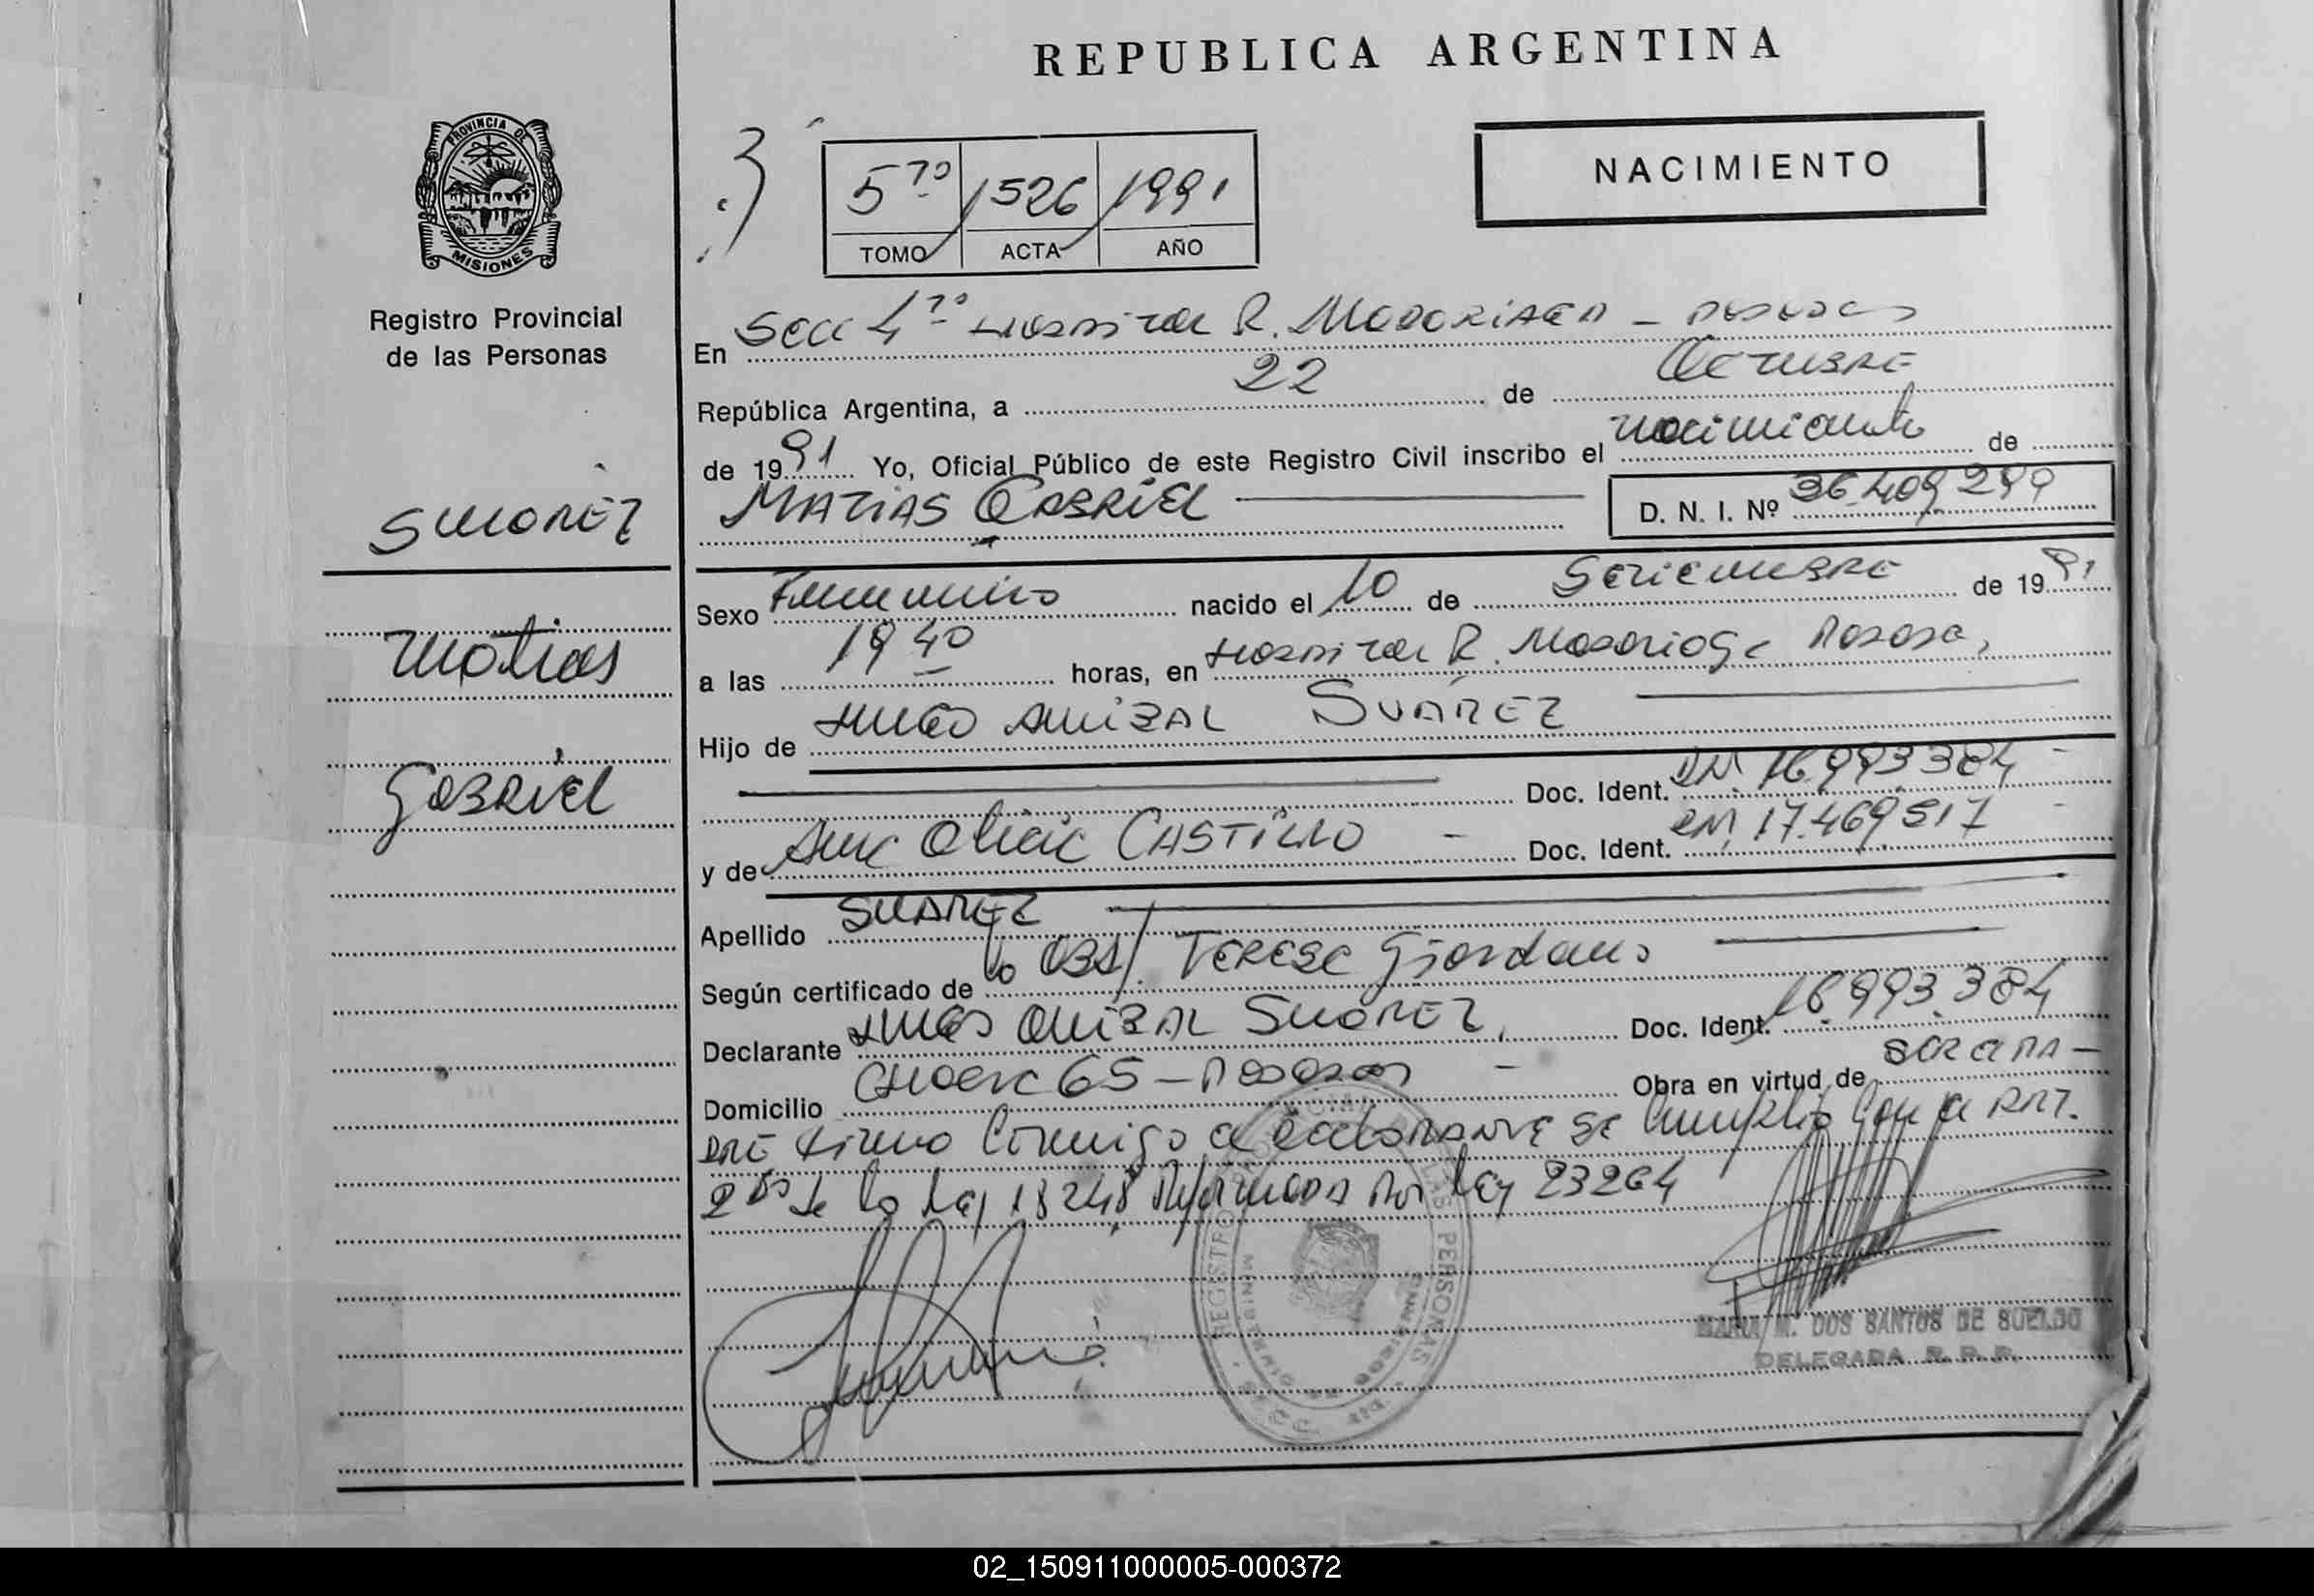 REPUBLICA ARGENTINA
NACIMIENTO
PROVINCIA DE
MISIONES
Registro Provincial
de las Personas
5to 1526 1991
TOMO ACTA AÑO
En Secc 4ta Hospital R. Madariaga - Posadas
República Argentina, a 22 de Octubre
de 1991 Yo, Oficial Público de este Registro Civil inscribo el nacimiento de
MATIAS GABRIEL
D. N. I. Nº 36.409.299
SUAREZ
Matias
Gabriel
Sexo Femenino nacido el 10 de Setiembre de 1991
a las 19 40 horas, en Hospital R. Madariaga Posadas
Hijo de Hugo Anibal SUÁREZ
Doc. Ident. DNI 16.993.384
y de Ana Alicia CASTILLO - Doc. Ident. DNI 17.469.517
Apellido SUAREZ
Según certificado de la Obst. Teresa Giordano
Declarante Hugo Anibal Suarez, Doc. Ident. 16.993.384
Domicilio 65 - Posadas - Obra en virtud de ser el pa-
dre firma conmigo el declarante se cumplió con el Art.
2do de la Ley 18248 Reformada por Ley 23264
REGISTRO PROVINCIAL DE LAS PERSONAS
MINISTERIO DE GOBIERNO
MARIA M. DOS SANTOS DE SUELDO
DELEGADA R. P. P.
02_150911000005-000372